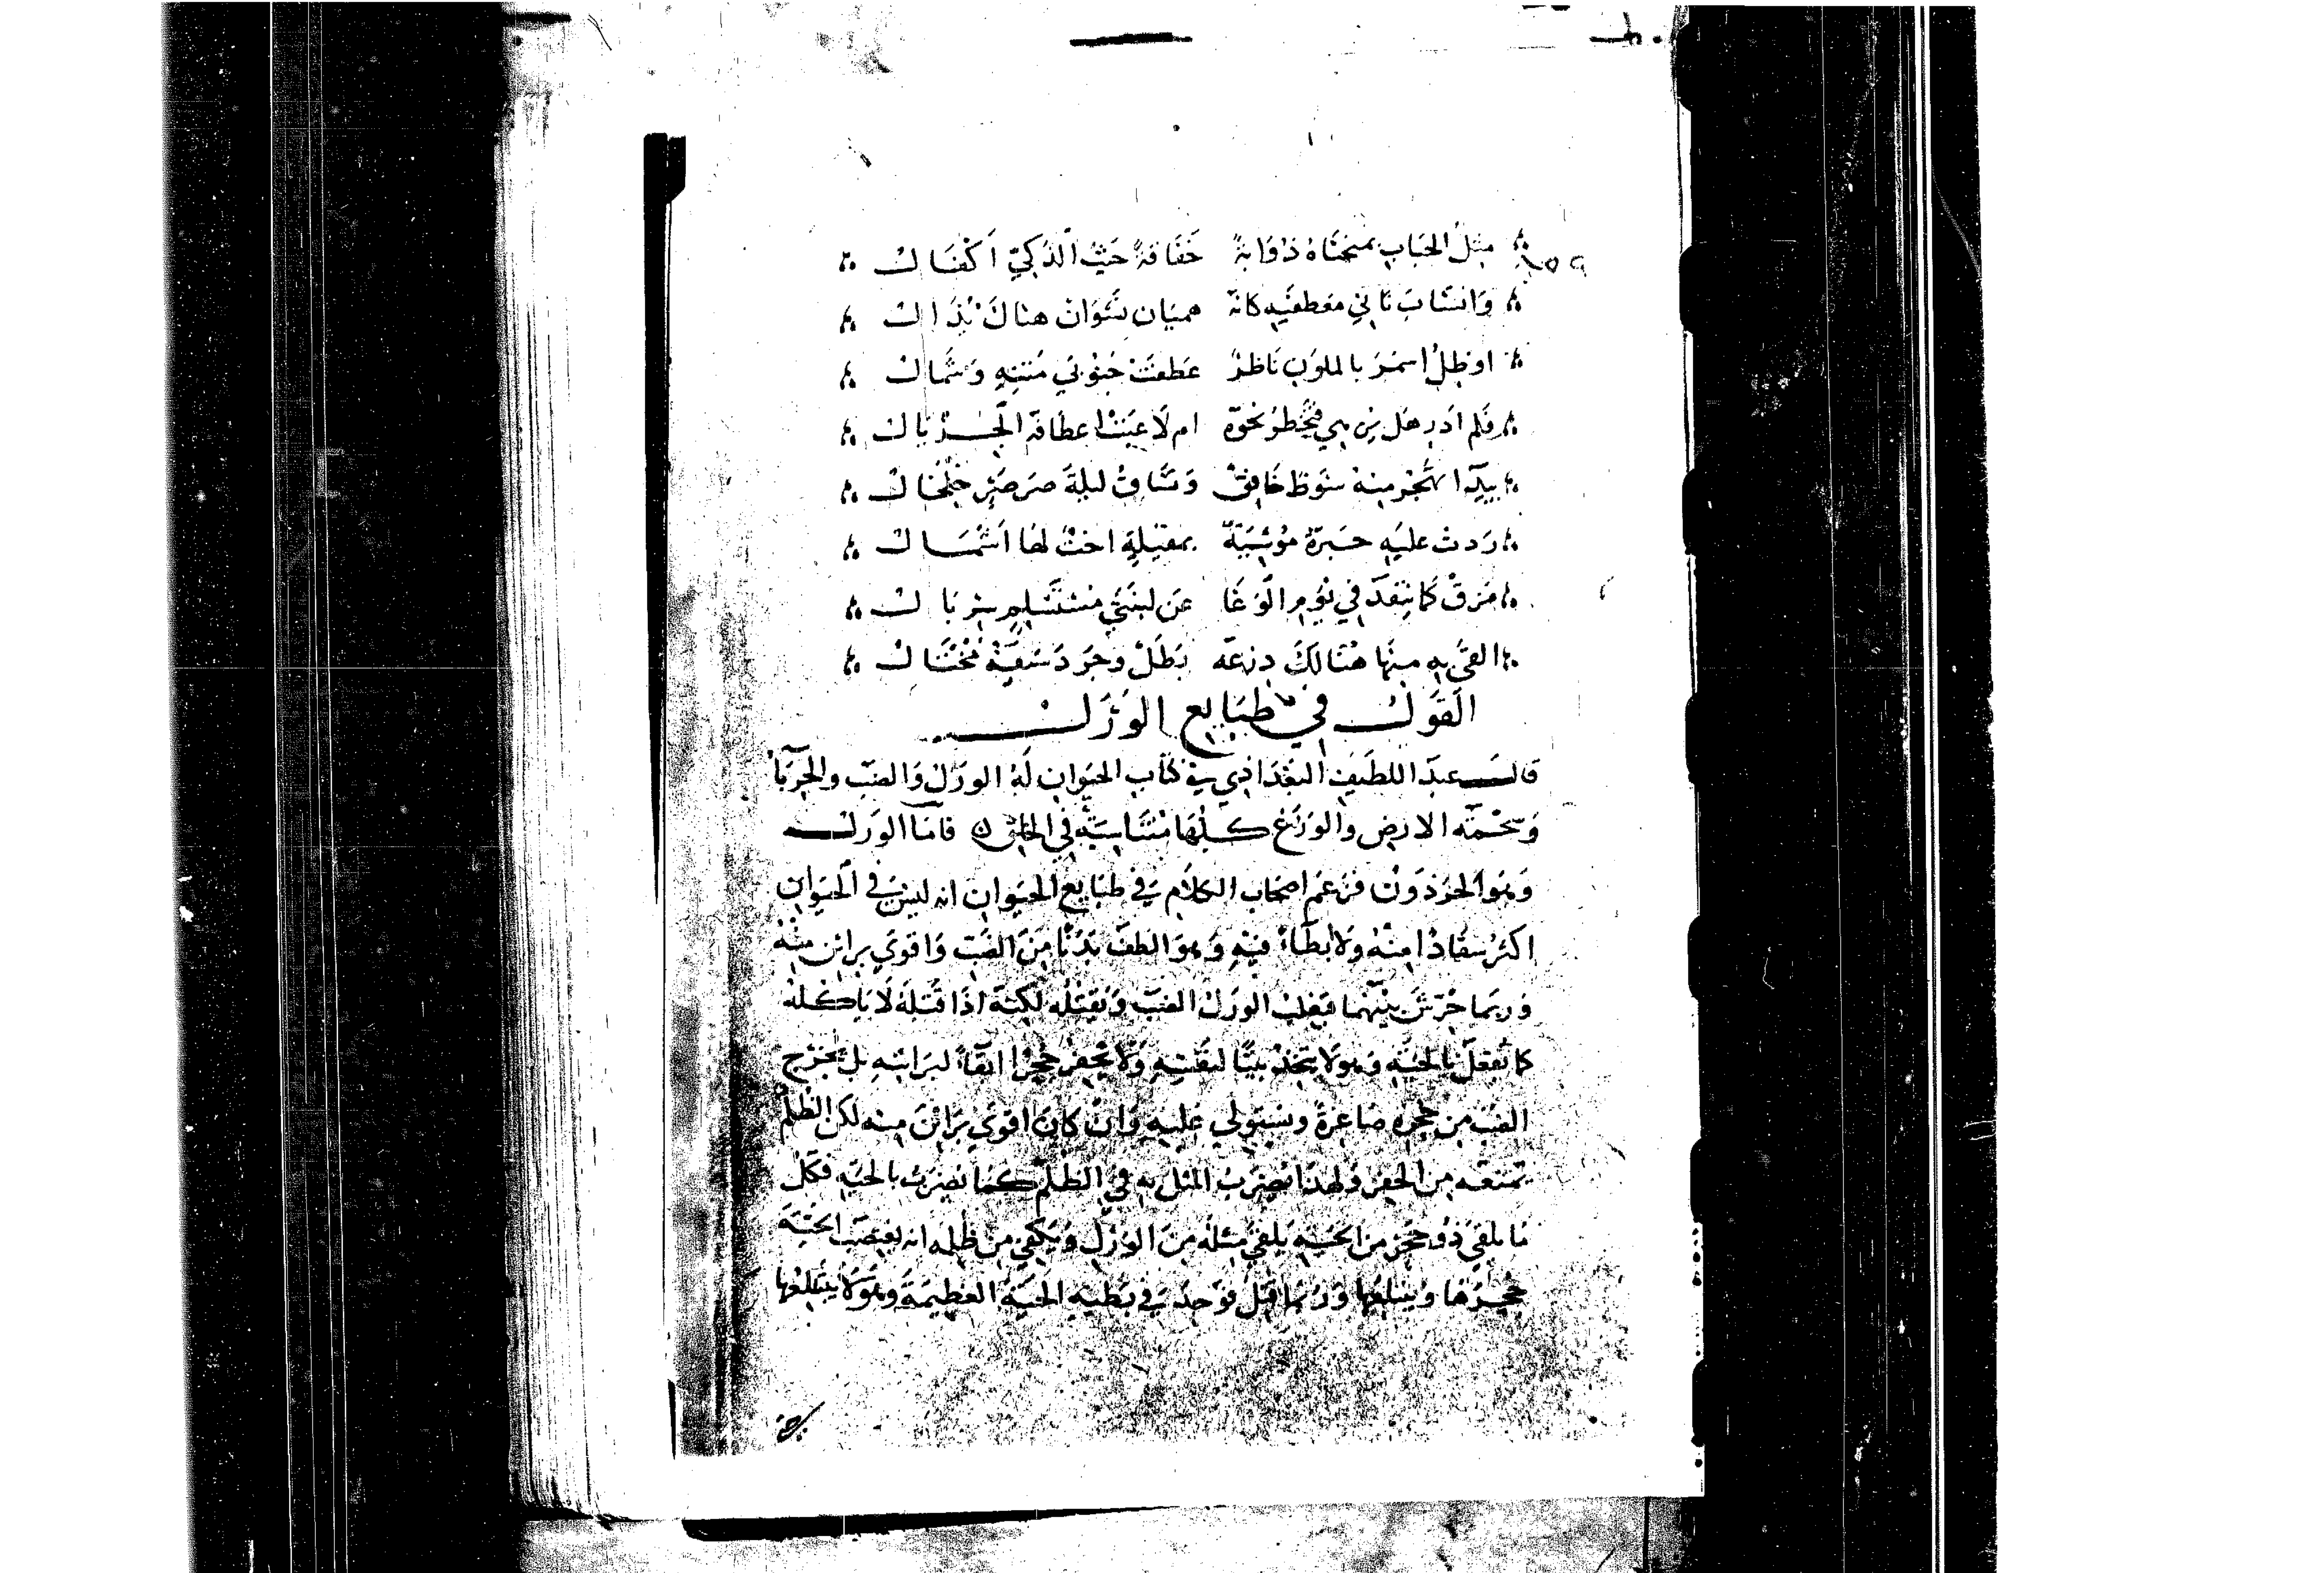 مثل الحباب بمنحناه ذؤابة خفاقة حيث الذكي اكفال
وانساب ثاني معطفيه كانه هميان نشوان هناك نذال
او ظل اسمر باللوب ناظر عطفت جنوبي متنه وشمال
فلم ادر هل يزهي فيخطر نخوة ام لاعبت اعطافه الجريال
ردت عليه حبرة موشية بمقيله اخت لها اسمال
مزق كما ينقد في يوم الوغا عن لبتي مستسلم سربال
القى به منها هنالك درعه بطل وجرد سيفه مختال
القول في طبايع الورل
قال عبد اللطيف البغدادي في كتاب الحيوان له الورل والضب والحربا
وسحمة الارض والوزغ كلها متناسبة في الخلق فاما الورل
وهو الحرذون فزعم اصحاب الكلام في طبايع الحيوان انه ليس في الحيوان
اكثر سفادا منه ولا ابطاء فيه وهو الطف بدنا من الضب واقوى براثن منه
وربما حرش بينهما فيغلب الورل الضب ويقتله لكنه اذا قتله لا ياكله
كما يفعل بالحية وهو لا يتخذ بيتا لنفسه ولا يحفر جحرا اتقاء لبراثنه بل يخرج
الضب من جحره صاغرة ويستولي عليه وان كان اقوى براثن منه لكن الظلم
يمنعه من الحفر ولهذا يضرب المثل به في الظلم كما يضرب بالحية فكل
ما يلقى ذو حجر من الحية يلقى مثله من الورل ويكفي من ظلمه انه يغتصب الحية
جحرها ويبتلعها وربما قتل فوجد في بطنه الحية العظيمة وهو لا يبتلعها